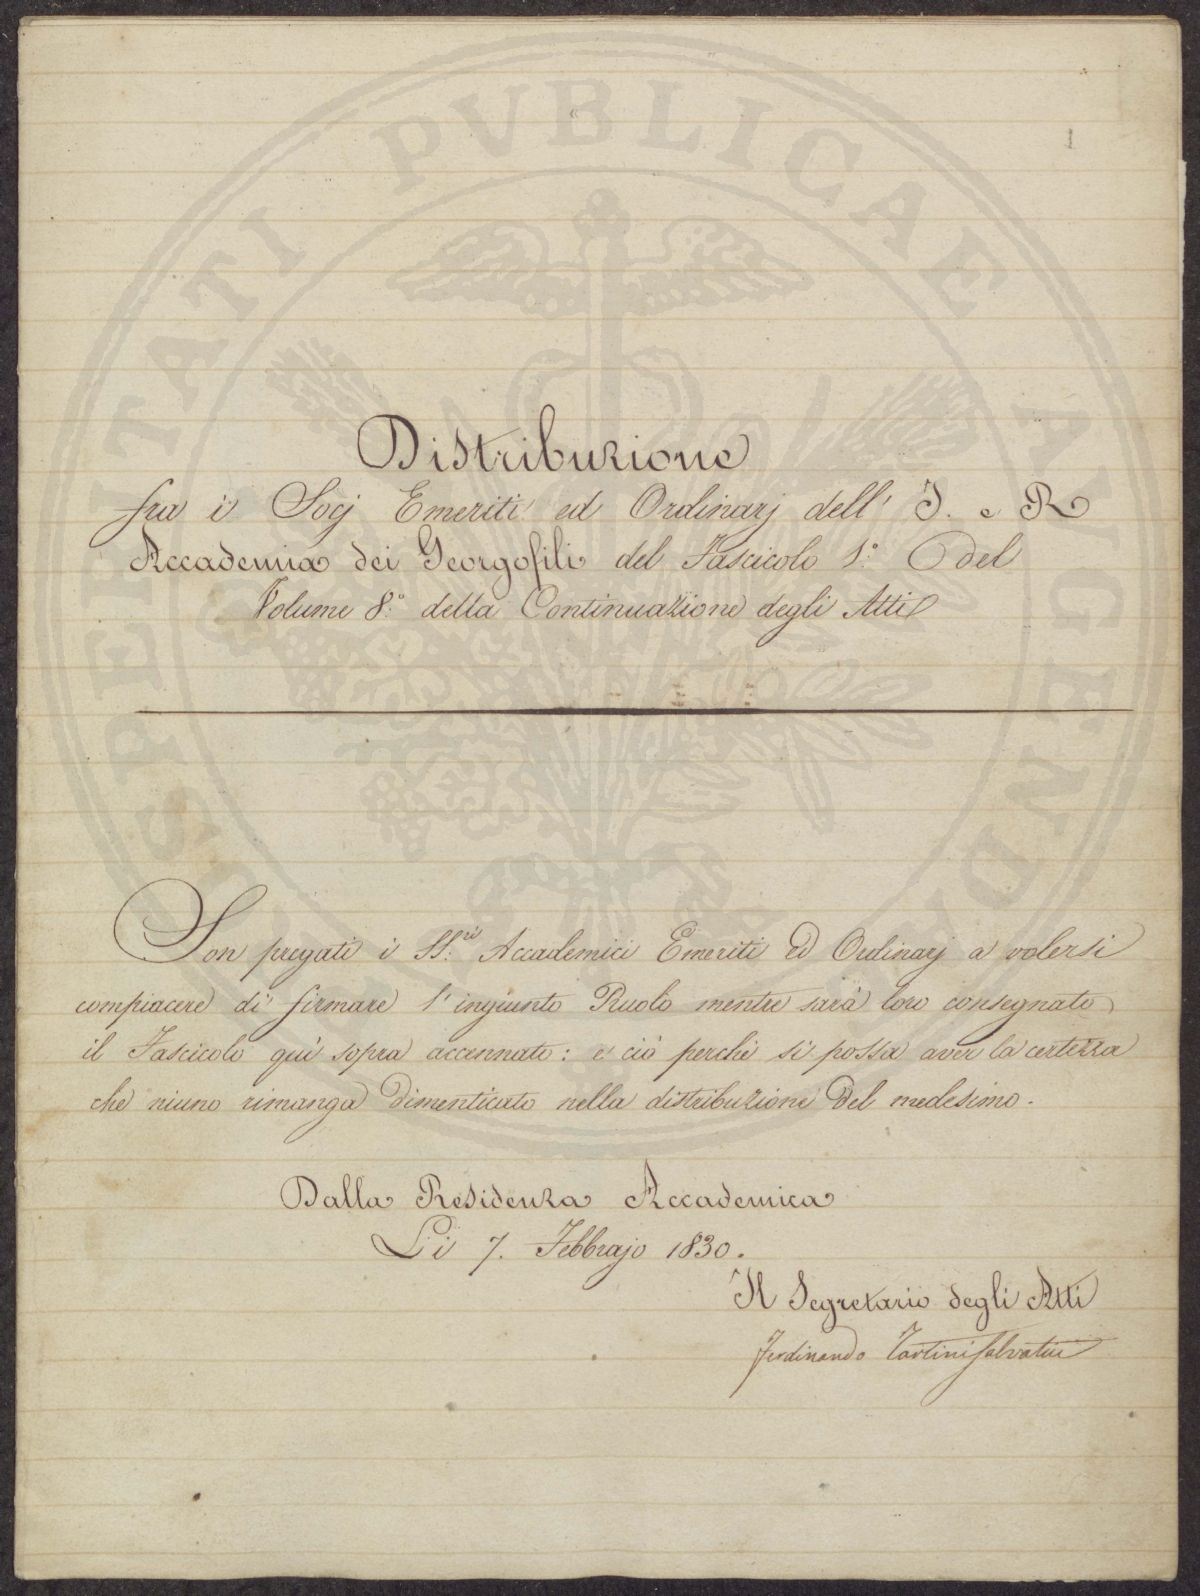 1
Distribuzione
fra i Socj Emeriti ed Ordinarj dell' I. e R
Accademia dei Georgofili del Fascicolo 1.° del
Volume 8.° della Continuazione degli Atti
Son pregati i SS.ri Accademici Emeriti ed Ordinarj a volersi
compiacere di firmare l'ingiunto Ruolo mentre sarà loro consegnato
il Fascicolo quì sopra accennato: e ciò perchè si possa aver la certezza
che niuno rimanga dimenticato nella distribuzione del medesimo.
Dalla Residenza Accademica
Li 7. Febbrajo 1830.
Il Segretario degli Atti
Ferdinando Tartini Salvatici
PROSPERITATI PVBLICAE AVGENDAE